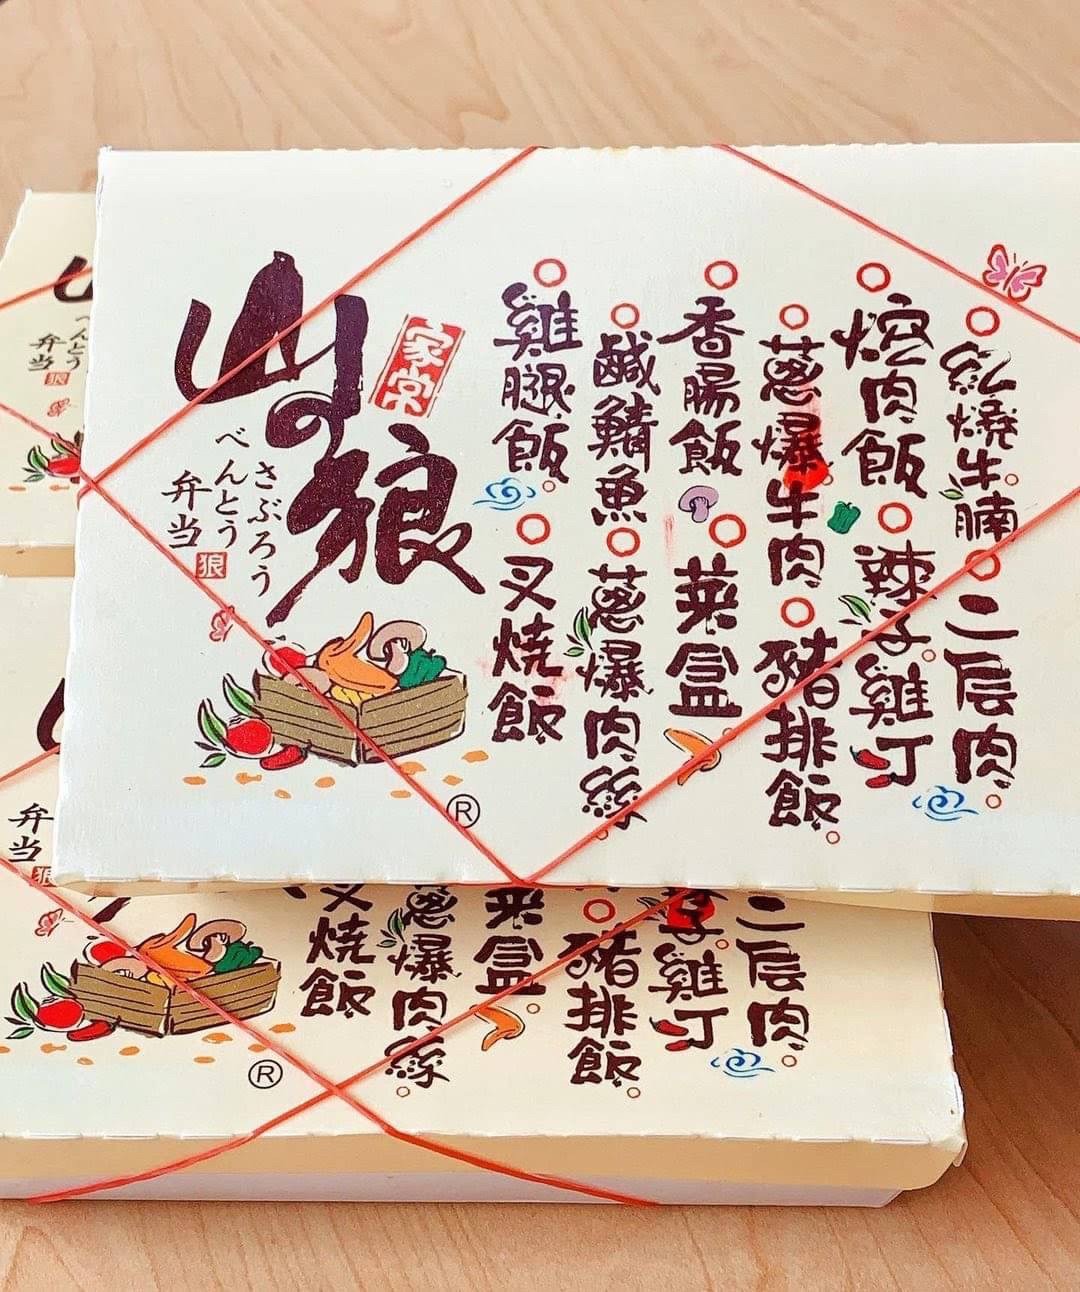 山の狼
家常
さぶろう
べんとう
弁当
狼
紅燒牛腩
二层肉
焢肉飯
辣子雞丁
蔥爆牛肉
豬排飯
香腸飯
菜盒
鹹鯖魚
蔥爆肉絲
雞腿飯
叉燒飯
®
べんとう
弁当
狼
弁当
狼
二层肉
子雞丁
豬排飯
菜盒
蔥爆肉絲
叉燒飯
®